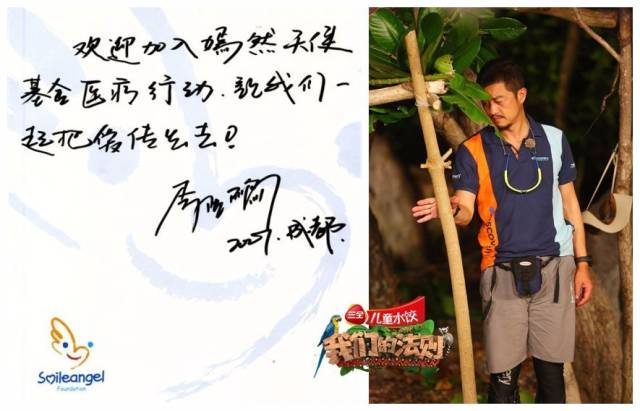 欢迎加入嫣然天使
基金医疗行动.让我们一
起把爱传出去!
李亚鹏
2007.成都.
Smileangel
Foundation
三全 儿童水饺
我们的法则